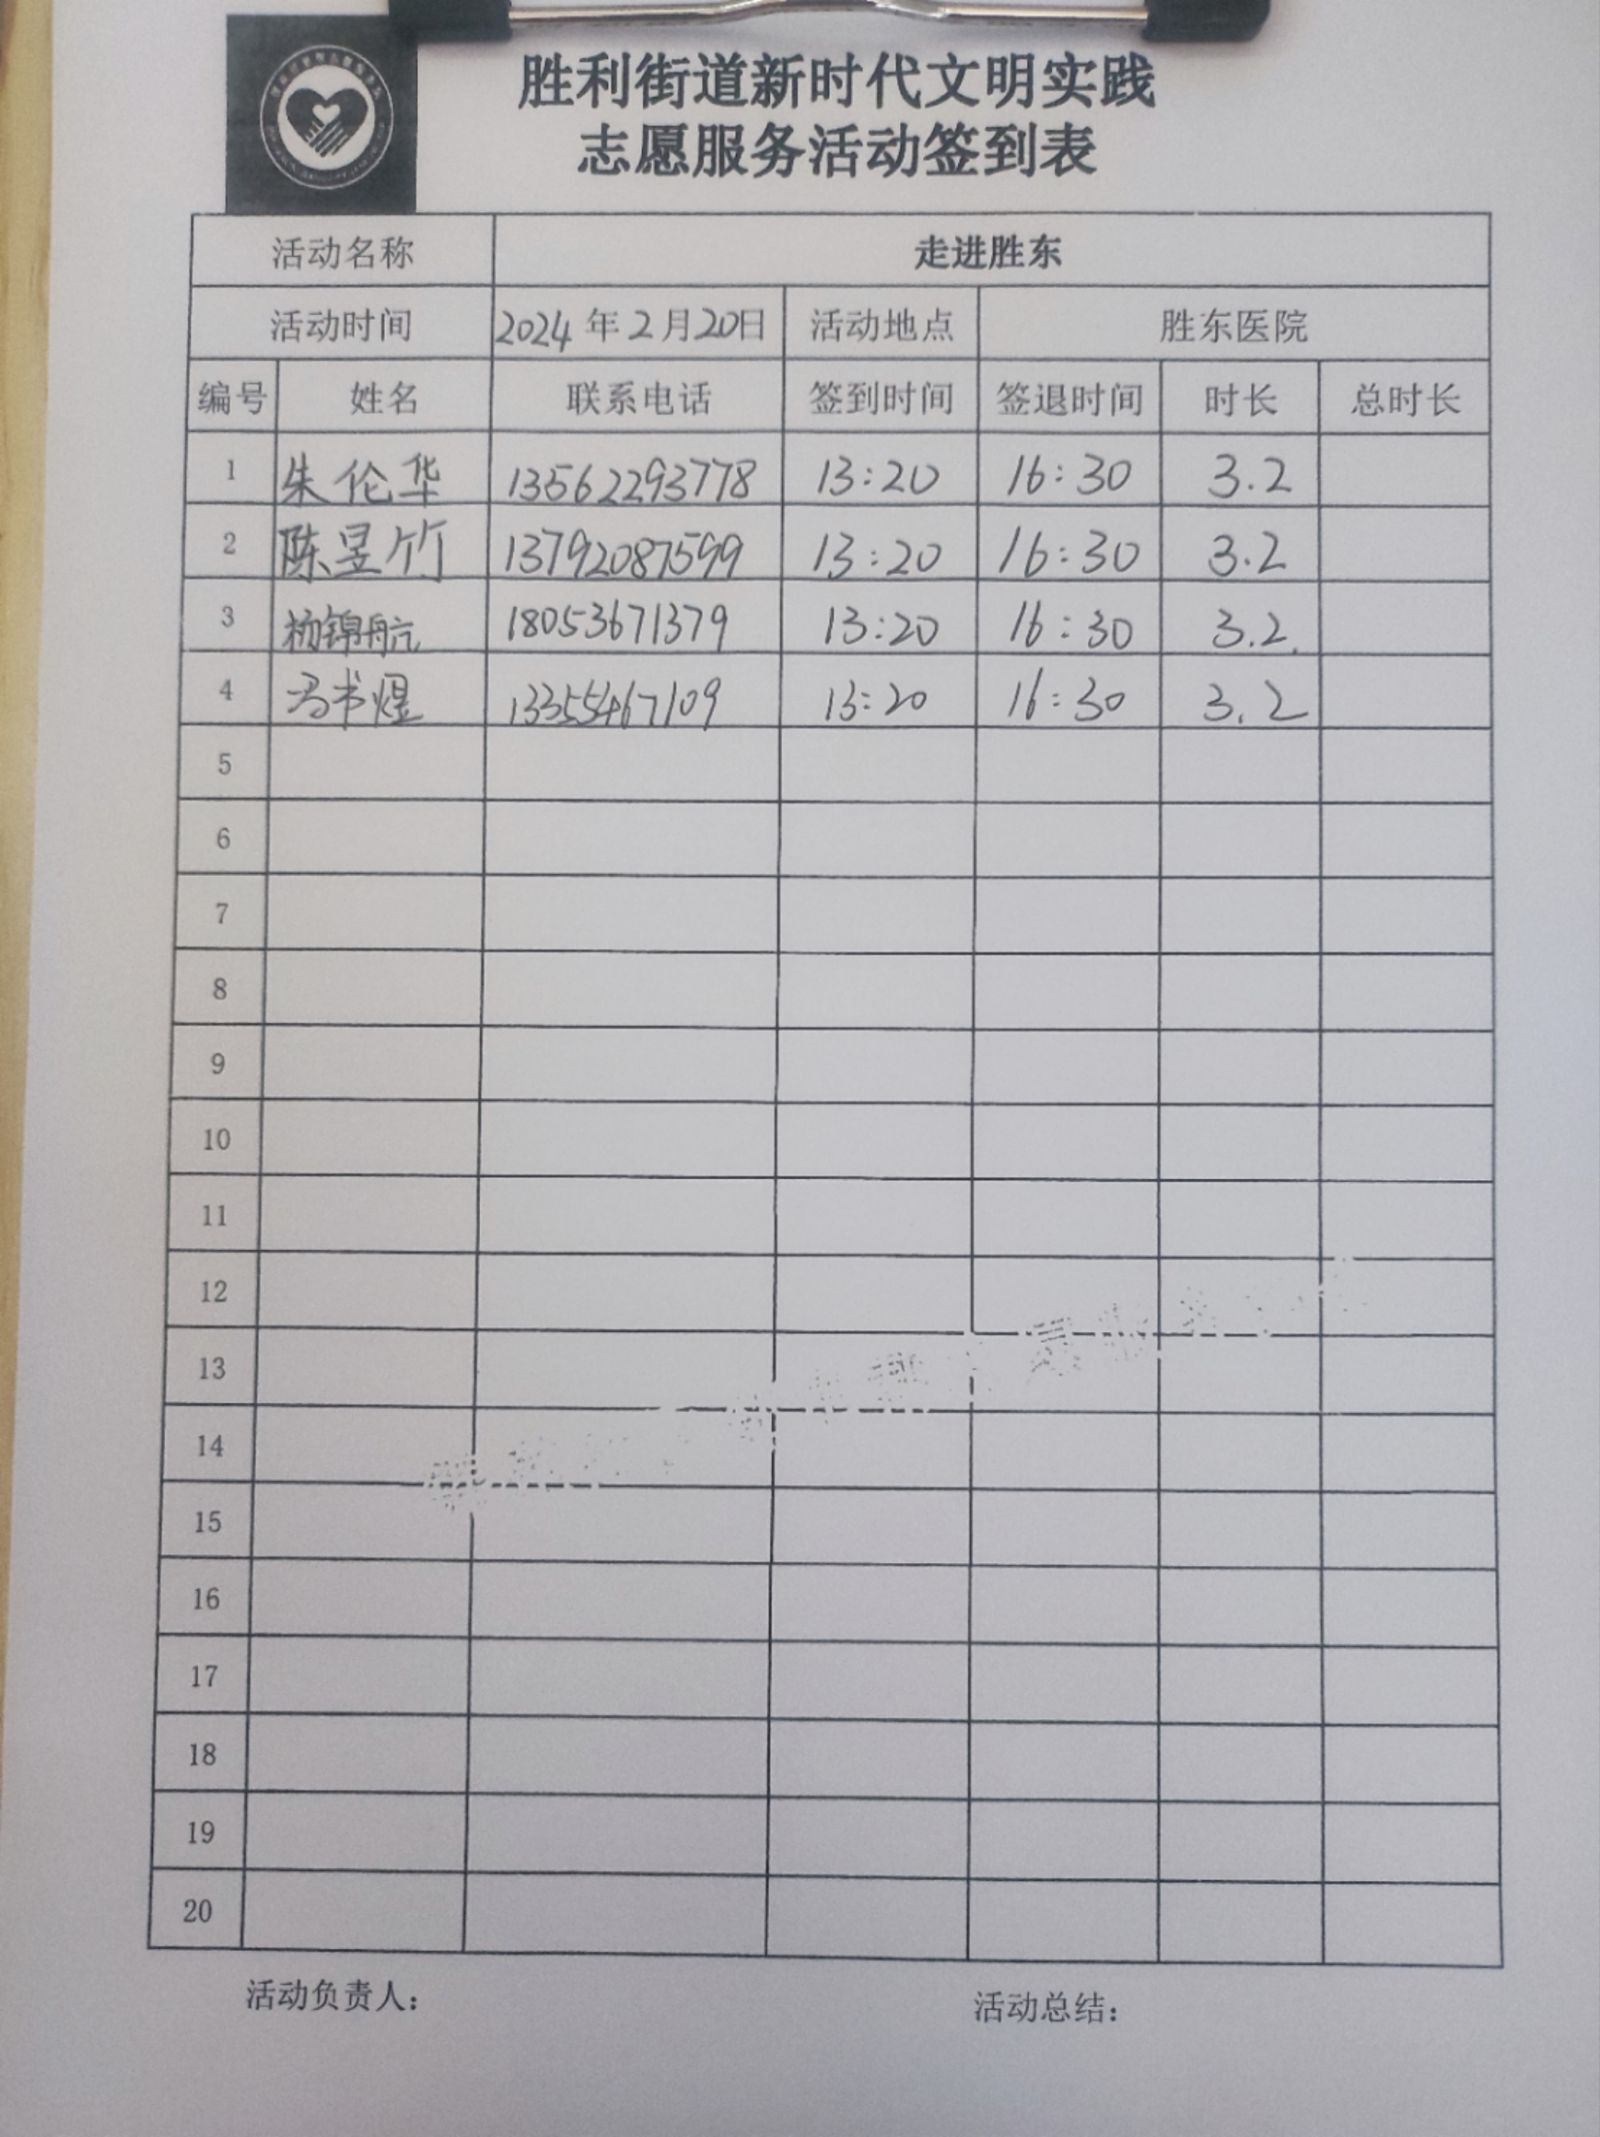 胜利街道新时代文明实践
志愿服务活动签到表
活动名称 走进胜东
活动时间 2024年2月20日 活动地点 胜东医院
编号 姓名 联系电话 签到时间 签退时间 时长 总时长
1 朱伦华 13562293778 13:20 16:30 3.2
2 陈昱竹 13792087599 13:20 16:30 3.2
3 杨锦航 18053671379 13:20 16:30 3.2
4 冯书煜 13355467109 13:20 16:30 3.2
5
6
7
8
9
10
11
12
13
14
15
16
17
18
19
20
活动负责人: 活动总结: